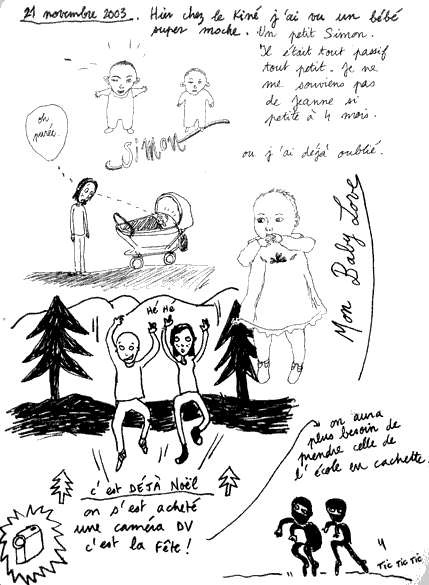 21 novembre 2003. Hier chez le Kiné j'ai vu un bébé
super moche. Un petit Simon.
Il était tout passif
tout petit. Je ne
me souviens pas
de Jeanne si
petite à 4 mois.
ou j'ai déjà oublié.
Simon
oh
purée..
Mon Baby Love
Hé Hé
c'est DÉJÀ Noël
on s'est acheté
une caméra DV
c'est la Fête!
on aura
plus besoin de
prendre celle de
l'école en cachette.
Tic Tic Tic